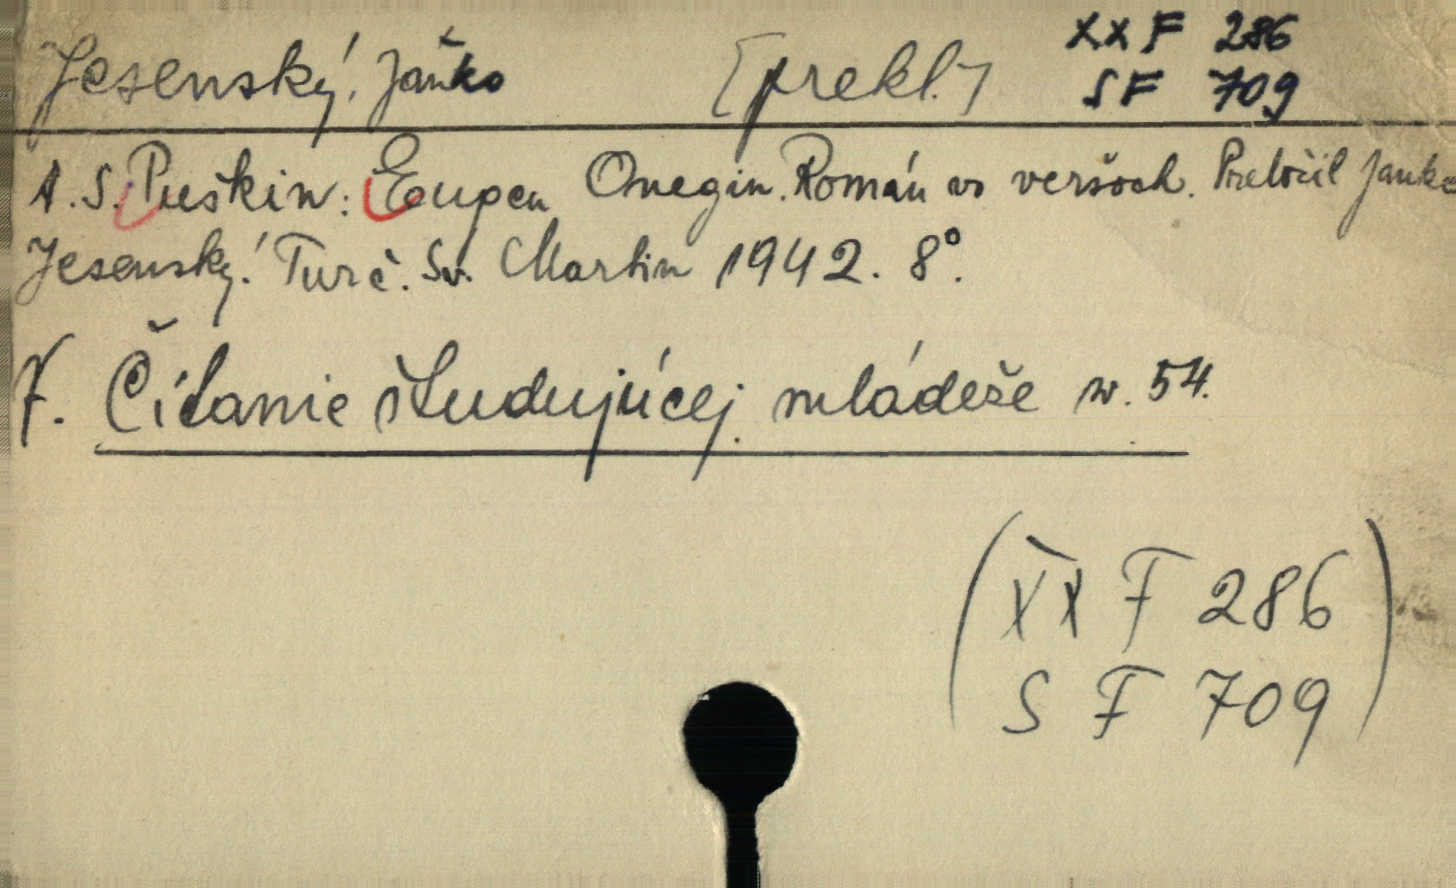 Jesenský, Janko [prekl.] XX F 286
SF 709
A. S. Puškin: Eugen Onegin. Román vo veršoch. Preložil Janko
Jesenský. Turč. Sv. Martin 1942. 8°.
F. Čítanie študujúcej mládeže sv. 54.
(XX F 286
S F 709)